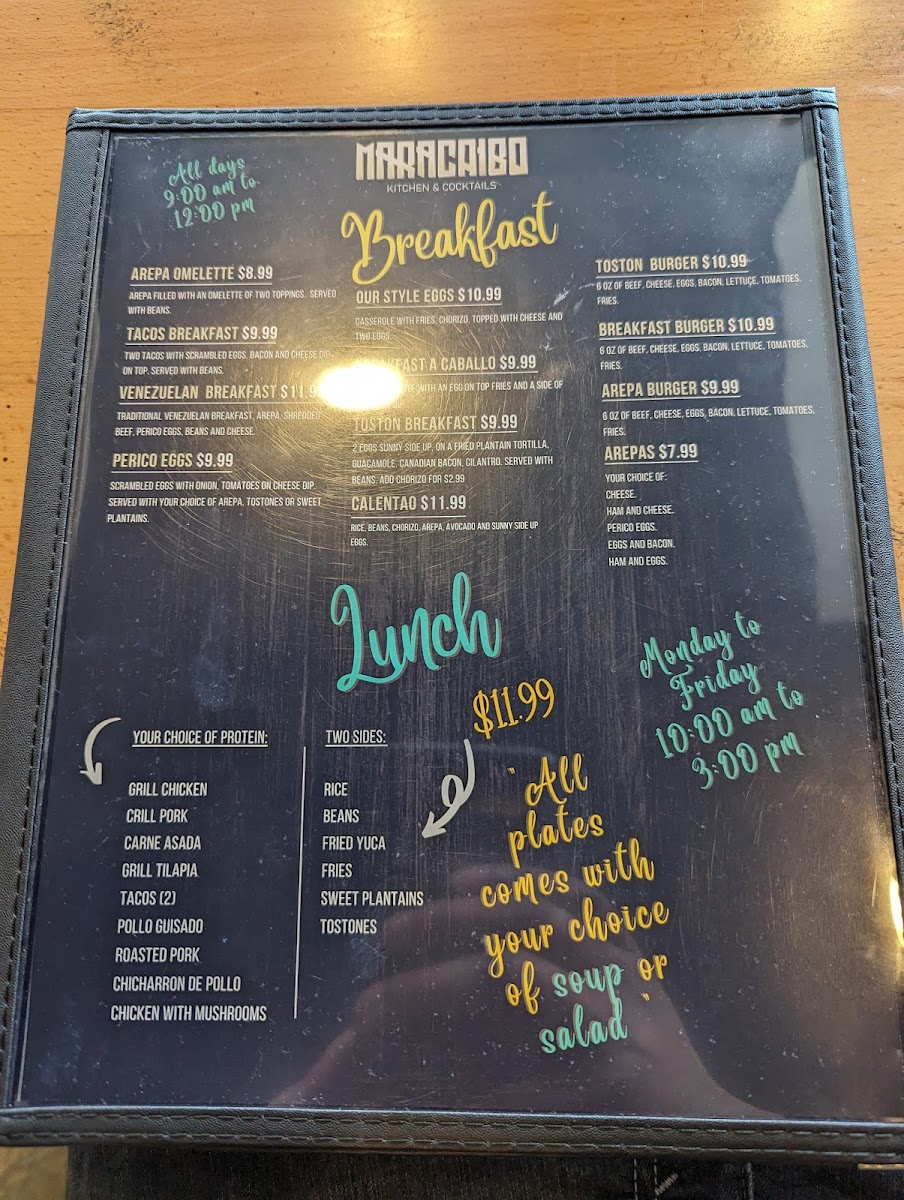 All days
9:00 am to
12:00 pm
MARACAIBO
KITCHEN & COCKTAILS
Breakfast
AREPA OMELETTE $8.99
AREPA FILLED WITH AN OMELETTE OF TWO TOPPINGS. SERVED
WITH BEANS.
TACOS BREAKFAST $9.99
TWO TACOS WITH SCRAMBLED EGGS, BACON AND CHEESE DIP
ON TOP. SERVED WITH BEANS.
VENEZUELAN BREAKFAST $11.9
TRADITIONAL VENEZUELAN BREAKFAST, AREPA, SHREDDED
BEEF, PERICO EGGS, BEANS AND CHEESE.
PERICO EGGS $9.99
SCRAMBLED EGGS WITH ONION, TOMATOES ON CHEESE DIP.
SERVED WITH YOUR CHOICE OF AREPA, TOSTONES OR SWEET
PLANTAINS.
OUR STYLE EGGS $10.99
CASSEROLE WITH FRIES, CHORIZO, TOPPED WITH CHEESE AND
TWO EGGS
A CABALLO $9.99
WITH AN EGG ON TOP FRIES AND A SIDE OF
TOSTON BREAKFAST $9.99
2 EGGS SUNNY SIDE UP, ON A FRIED PLANTAIN TORTILLA,
GUACAMOLE, CANADIAN BACON, CILANTRO. SERVED WITH
BEANS. ADD CHORIZO FOR $2.99
CALENTAO $11.99
RICE, BEANS, CHORIZO, AREPA, AVOCADO AND SUNNY SIDE UP
EGGS.
TOSTON BURGER $10.99
6 OZ OF BEEF, CHEESE, EGGS, BACON, LETTUCE, TOMATOES,
FRIES.
BREAKFAST BURGER $10.99
6 OZ OF BEEF, CHEESE, EGGS, BACON, LETTUCE, TOMATOES,
FRIES.
AREPA BURGER $9.99
6 OZ OF BEEF, CHEESE, EGGS, BACON, LETTUCE, TOMATOES,
FRIES.
AREPAS $7.99
YOUR CHOICE OF:
CHEESE.
HAM AND CHEESE.
PERICO EGGS.
EGGS AND BACON.
HAM AND EGGS.
Lunch
$11.99
Monday to
Friday
10:00 am to
3:00 pm
YOUR CHOICE OF PROTEIN:
GRILL CHICKEN
CRILL PORK
CARNE ASADA
GRILL TILAPIA
TACOS (2)
POLLO GUISADO
ROASTED PORK
CHICHARRON DE POLLO
CHICKEN WITH MUSHROOMS
TWO SIDES:
RICE
BEANS
FRIED YUCA
FRIES
SWEET PLANTAINS
TOSTONES
"All
plates
comes with
your choice
of soup or
salad"